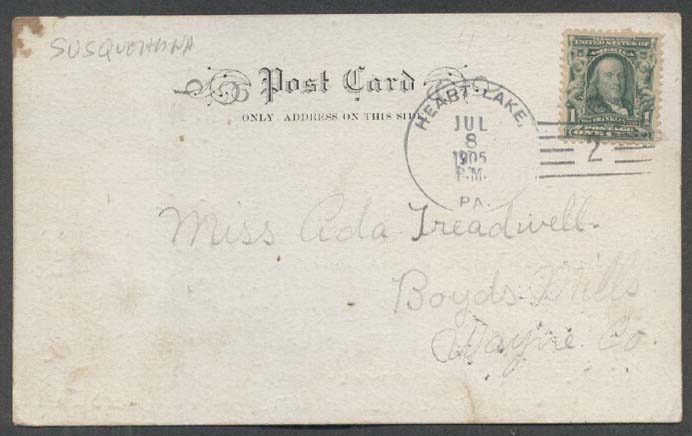 SUSQUEHANNA
Post Card
ONLY ADDRESS ON THIS SIDE
HEART LAKE,
JUL
8
1905
P.M.
PA.
2
UNITED STATES OF
AMERICA
1 1
POSTAGE
ONE CENT
Miss Ada Treadwell.
Boyds Mills
Wayne Co.